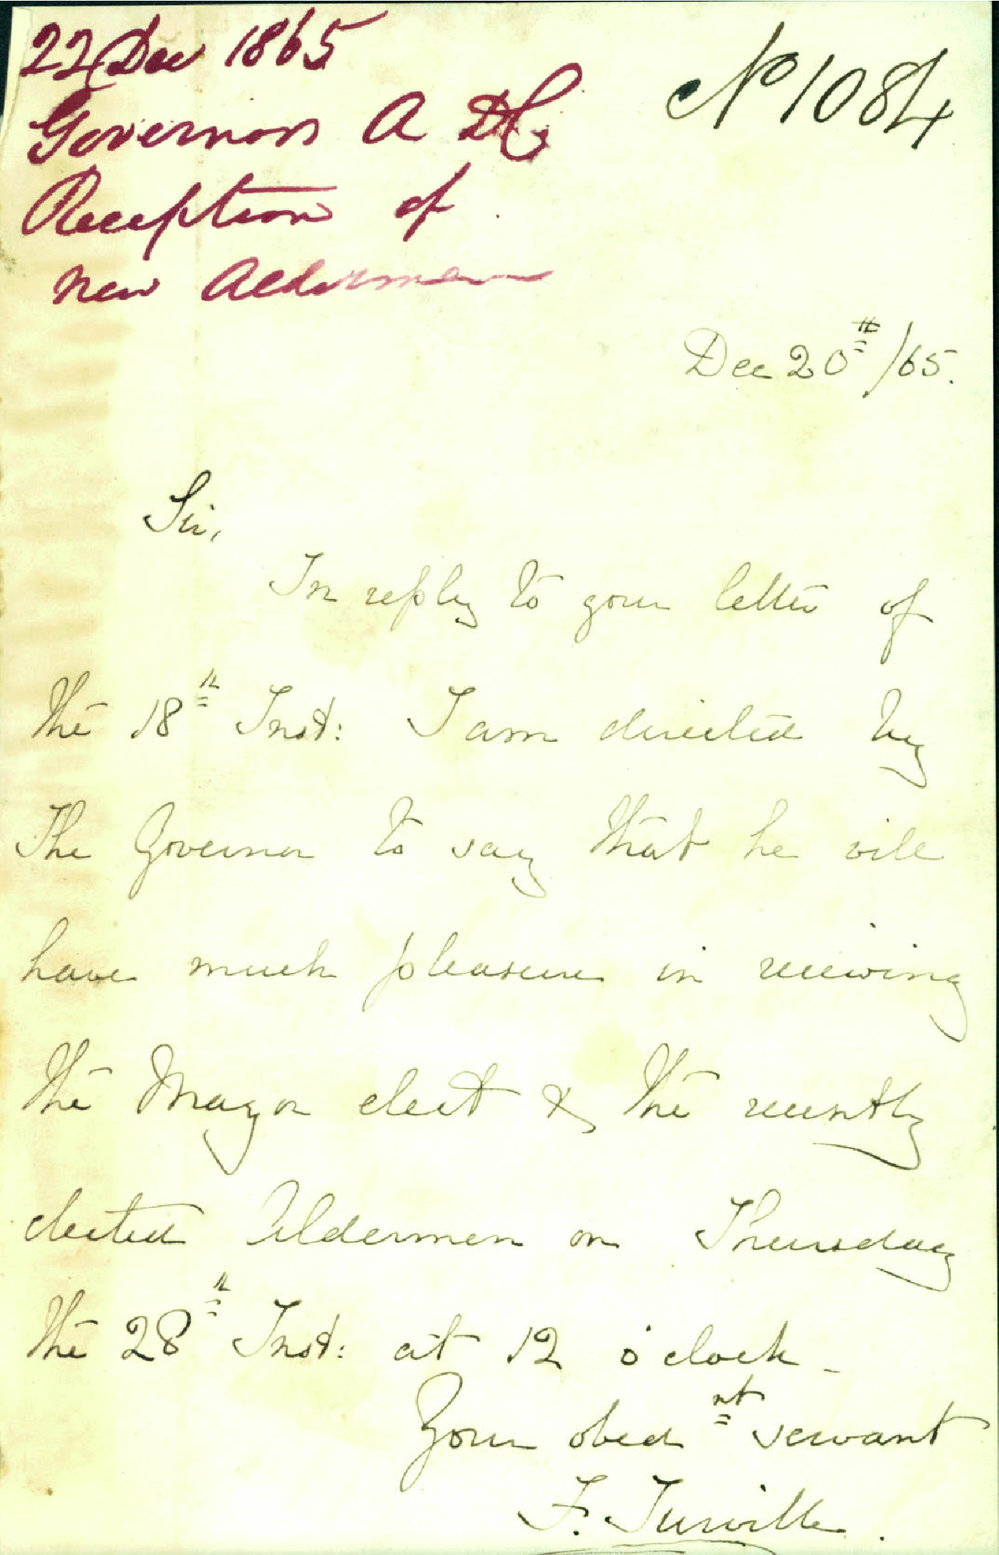 22 Dec 1865
Governors A DC
Reception of
new Aldermen
No 1084
Dec 20th/65.
Sir,
In reply to your letter of
the 18th Inst: I am directed by
The Governor to say that he will
have much pleasure in receiving
the Mayor elect & the recently
elected Aldermen on Thursday
the 28th Inst: at 12 o'clock_
Your obednt servant
F. Turville.